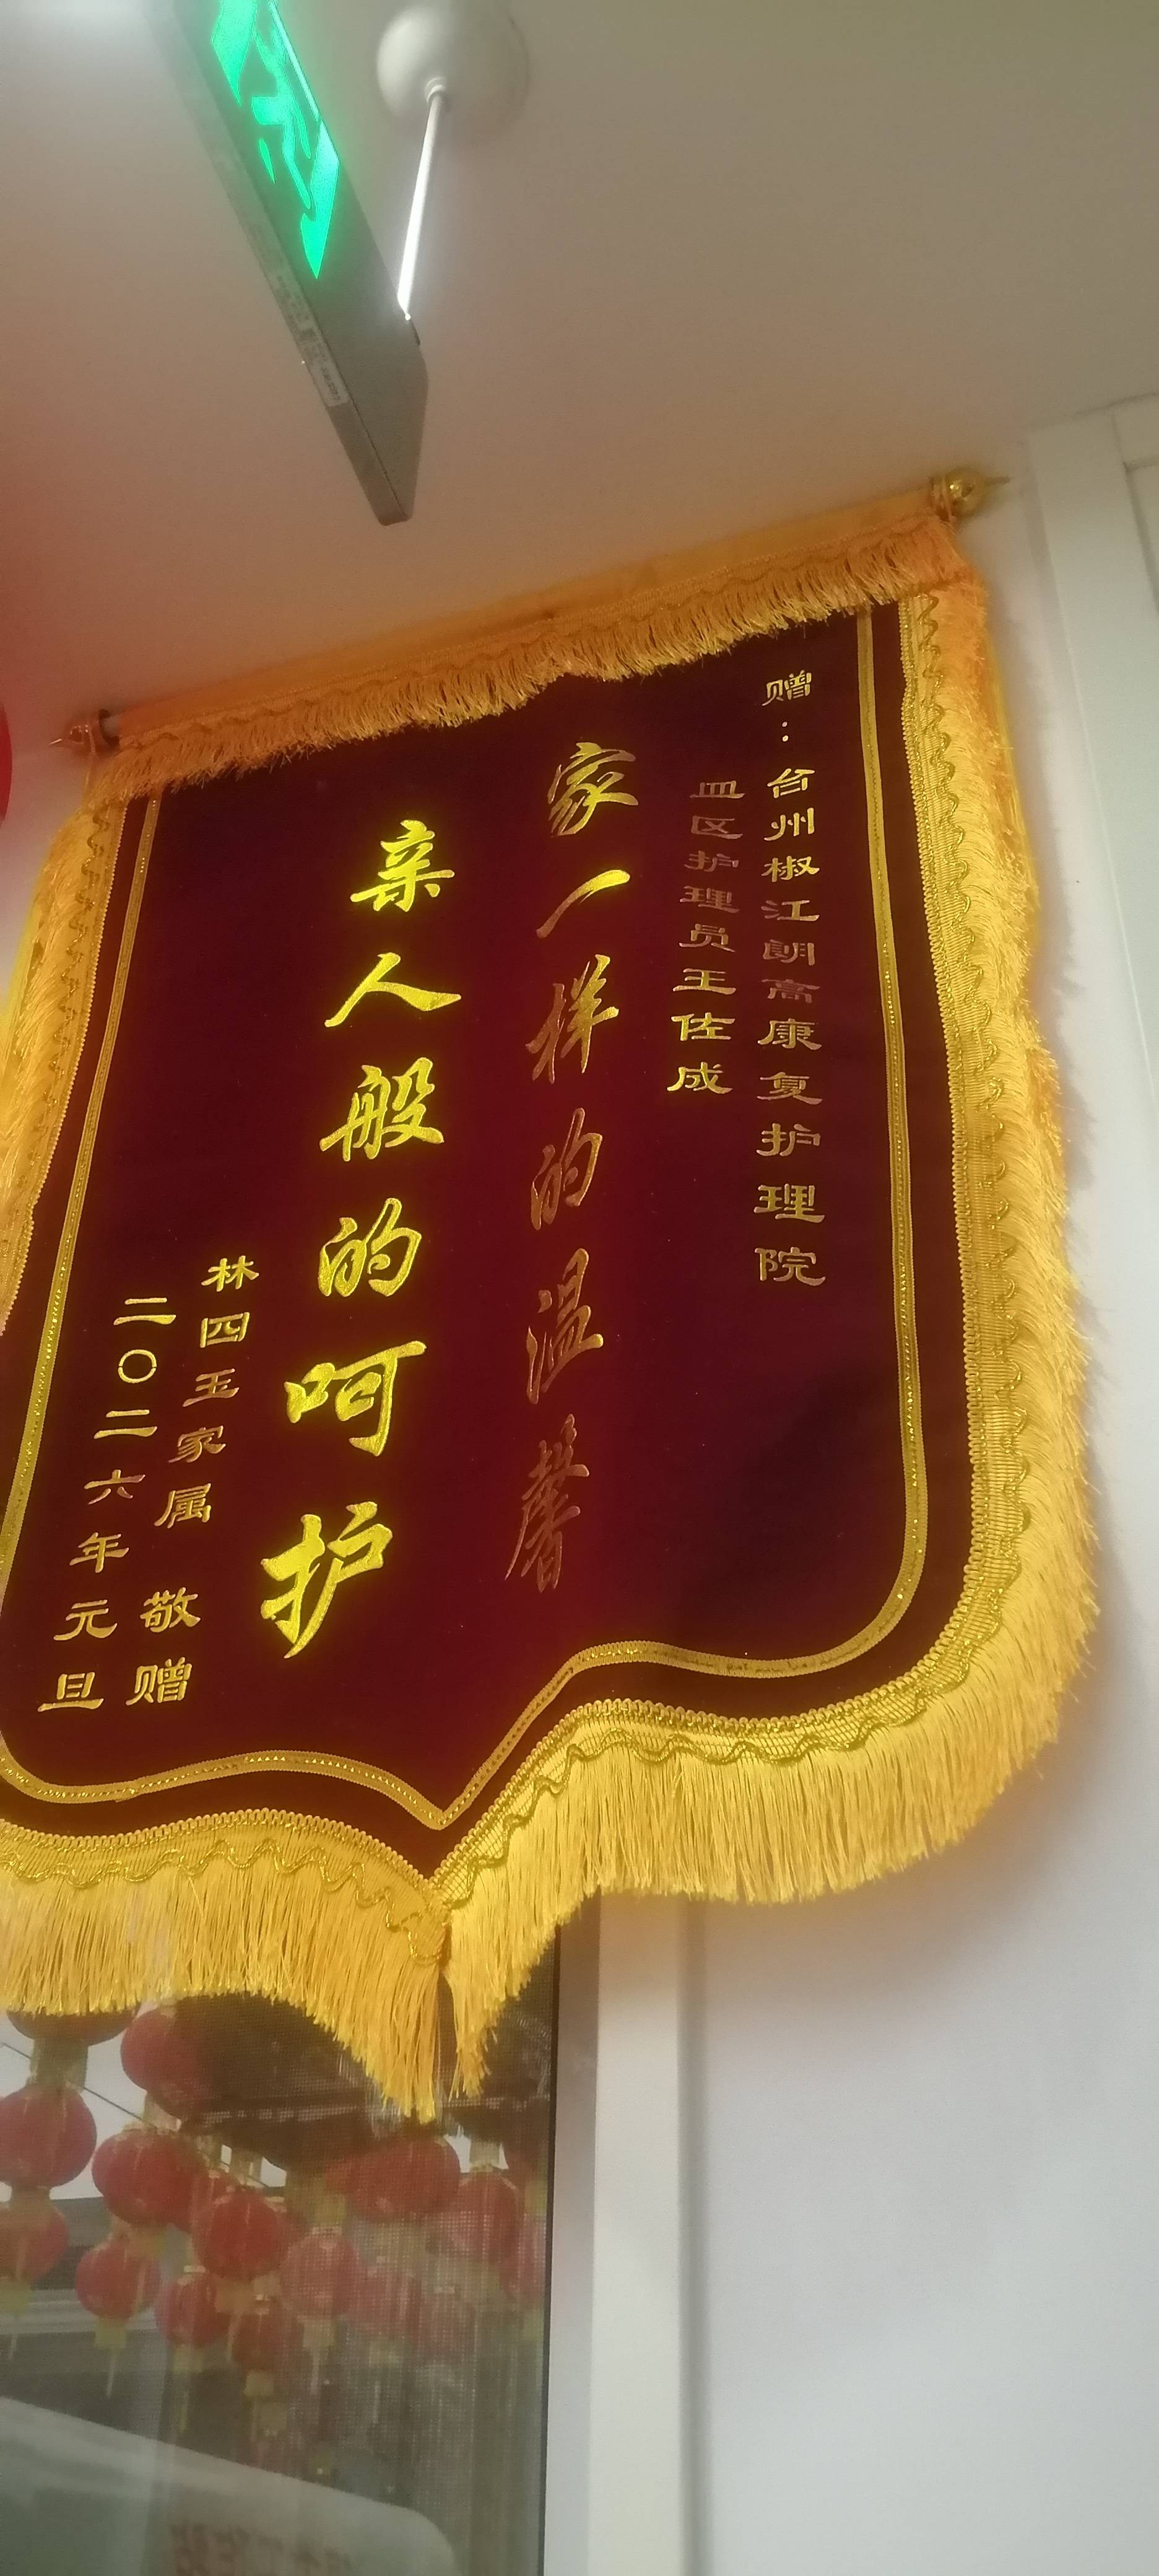 赠：台州椒江朗高康复护理院
皿区护理员王佐成
家一样的温馨
亲人般的呵护
林四玉家属 敬赠
二〇二六年元旦